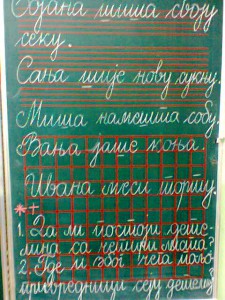 Бојана шиша своју
секу.
Сања шије нову сукњу.
Миша намешта собу.
Вања јаше коња.
Ивана меси торту.
1. Да ли постоји дете-
лина са четири листа?
2. Где и због чега пољо-
привредници сеју детелину?